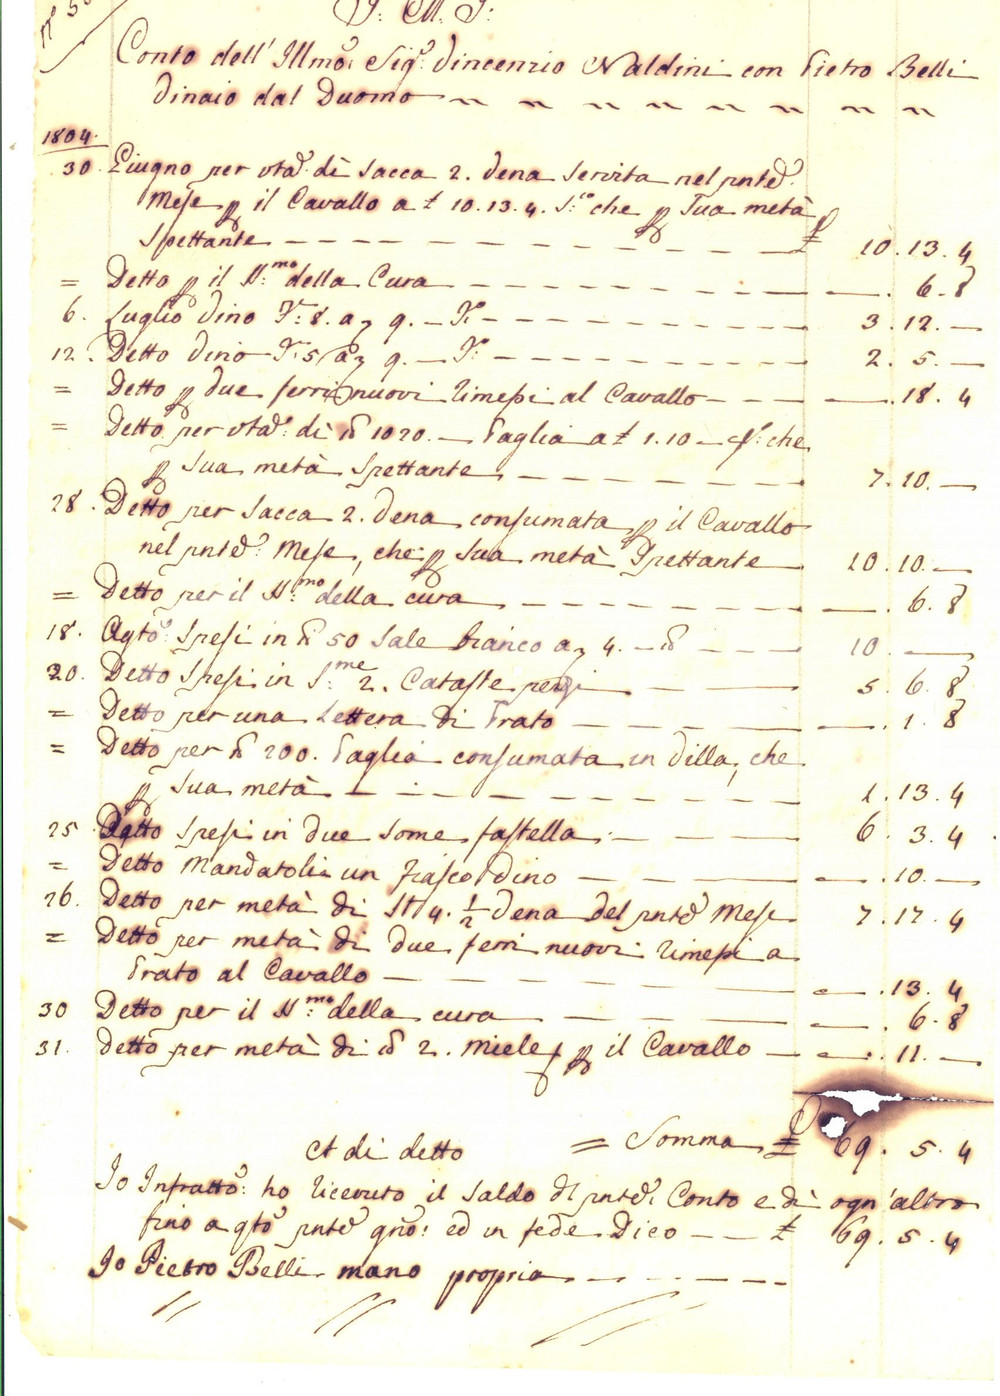 J: M: J:
Conto dell' Illmo: Sigr: Vincenzio Naldini con Pietro Belli
Vinaio dal Duomo
1804.
30. Giugno per vta: di Sacca 2. Vena Servita nel pnte:
Mese p il Cavallo a £ 10.13.4. che p Sua metà
Spettante £ 10.13.4
= Detto p il della Cura . 6.8
6. Luglio Vino F: 8. a 9. — F: 3.12.—
12. Detto Vino F: 5 a 9. — F: 2. 5.—
= Detto p due ferri nuovi rimessi al Cavallo .18.4
= Detto per vta: di 1020. — Paglia a £ 1.10 — che
p Sua metà Spettante 7.10.—
28. Detto per Sacca 2. Vena consumata p il Cavallo
nel pnte: Mese, che p Sua metà Spettante 10.10.—
= Detto per il della cura . 6.8
18. Agto: Spesi in 50 Sale bianco a 4. — 10 —
20. Detto Spesi in 2. Cataste pezzi 5.6.8
= Detto per una Lettera di Prato . 1.8
= Detto per 200. Paglia consumata in Villa, che
p Sua metà 1.13.4
25 Detto Spesi in due Some fastella 6.3.4
= Detto Mandatoli un fiasco Vino .10.—
26. Detto per metà di St 4. 1/2 Vena del pnte Mese 7.17.4
= Detto per metà di due ferri nuovi rimessi a
Prato al Cavallo .13.4
30 Detto per il della cura . 6.8
31. Detto per metà di 2. Miele p il Cavallo . 11.—
= Somma £ 69.5.4
A di detto
Io Infratto: ho ricevuto il Saldo del pnte: Conto e di ogn' altro
fino a qto pnte gno: ed in fede Dico — £ 69.5.4
Io Pietro Belli mano propria